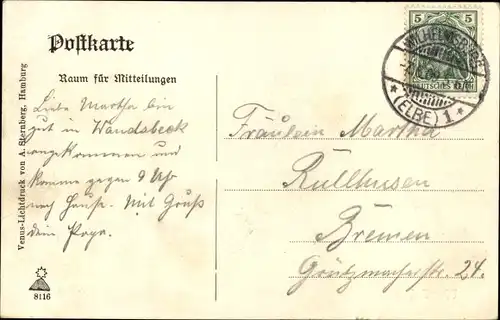 Postkarte
Raum für Mitteilungen
Liebe Martha bin
gut in Wandsbeck
angekommen und
komme gegen 9 Uhr
nach Hause. Mit Gruß
dein Papa.
Fräulein Martha
Rullhusen
Bremen
Grützmacherstr. 24.
5 5
DEUTSCHES REICH
WILHELMSBURG
* (ELBE) 1 *
Venus-Lichtdruck von A. Sternberg, Hamburg
8116